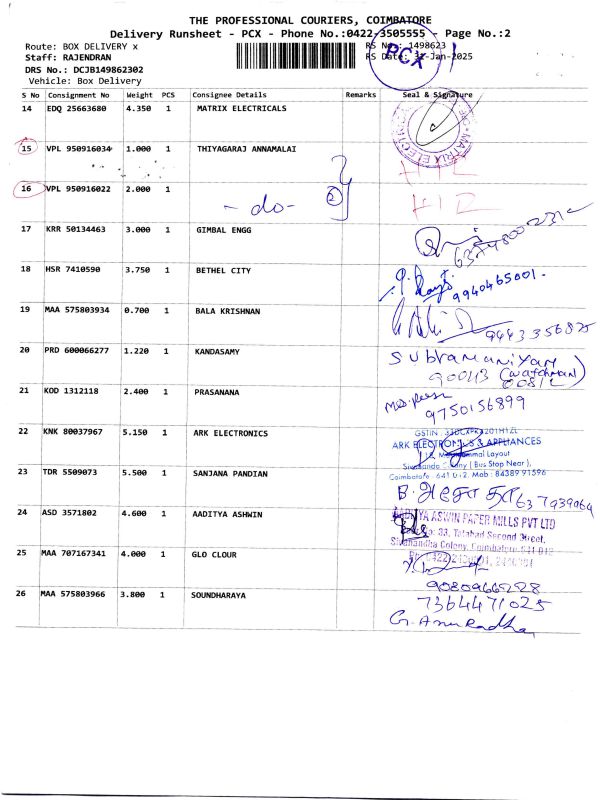 THE PROFESSIONAL COURIERS, COIMBATORE
Delivery Runsheet - PCX - Phone No.:0422-3505555 - Page No.:2
Route: BOX DELIVERY x
RS No.: 1498623
Staff: RAJENDRAN
RS Date: -Jan-2025
PCX
DRS No.: DCJB149862302
Vehicle: Box Delivery
S No Consignment No Weight PCS Consignee Details Remarks Seal & Signature
14 EDQ 25663680 4.350 1 MATRIX ELECTRICALS
15 VPL 950916034 1.000 1 THIYAGARAJ ANNAMALAI
16 VPL 950916022 2.000 1
- do - 2
17 KRR 50134463 3.000 1 GIMBAL ENGG
18 HSR 7410590 3.750 1 BETHEL CITY
9940465001.
19 MAA 575803934 0.700 1 BALA KRISHNAN
9443356825
20 PRD 600066277 1.220 1 KANDASAMY
Subramaniyan
(watchman)
21 KOD 1312118 2.400 1 PRASANANA
9750156899
22 KNK 80037967 5.150 1 ARK ELECTRONICS
ARK ELECTRONICS & APPLIANCES
Layout
Colony ( Bus Stop Near ),
Coimbatore - 641 012. Mob : 84389 91596
23 TDR 5509073 5.500 1 SANJANA PANDIAN
6379390
24 ASD 3571802 4.600 1 AADITYA ASHWIN
AADITYA ASWIN PAPER MILLS PVT LTD
33, Tatabad Second Street,
Colony, Coimbatore 641 012
25 MAA 707167341 4.000 1 GLO CLOUR
9080966228
26 MAA 575803966 3.800 1 SOUNDHARAYA
7364471025
G. Anuradha